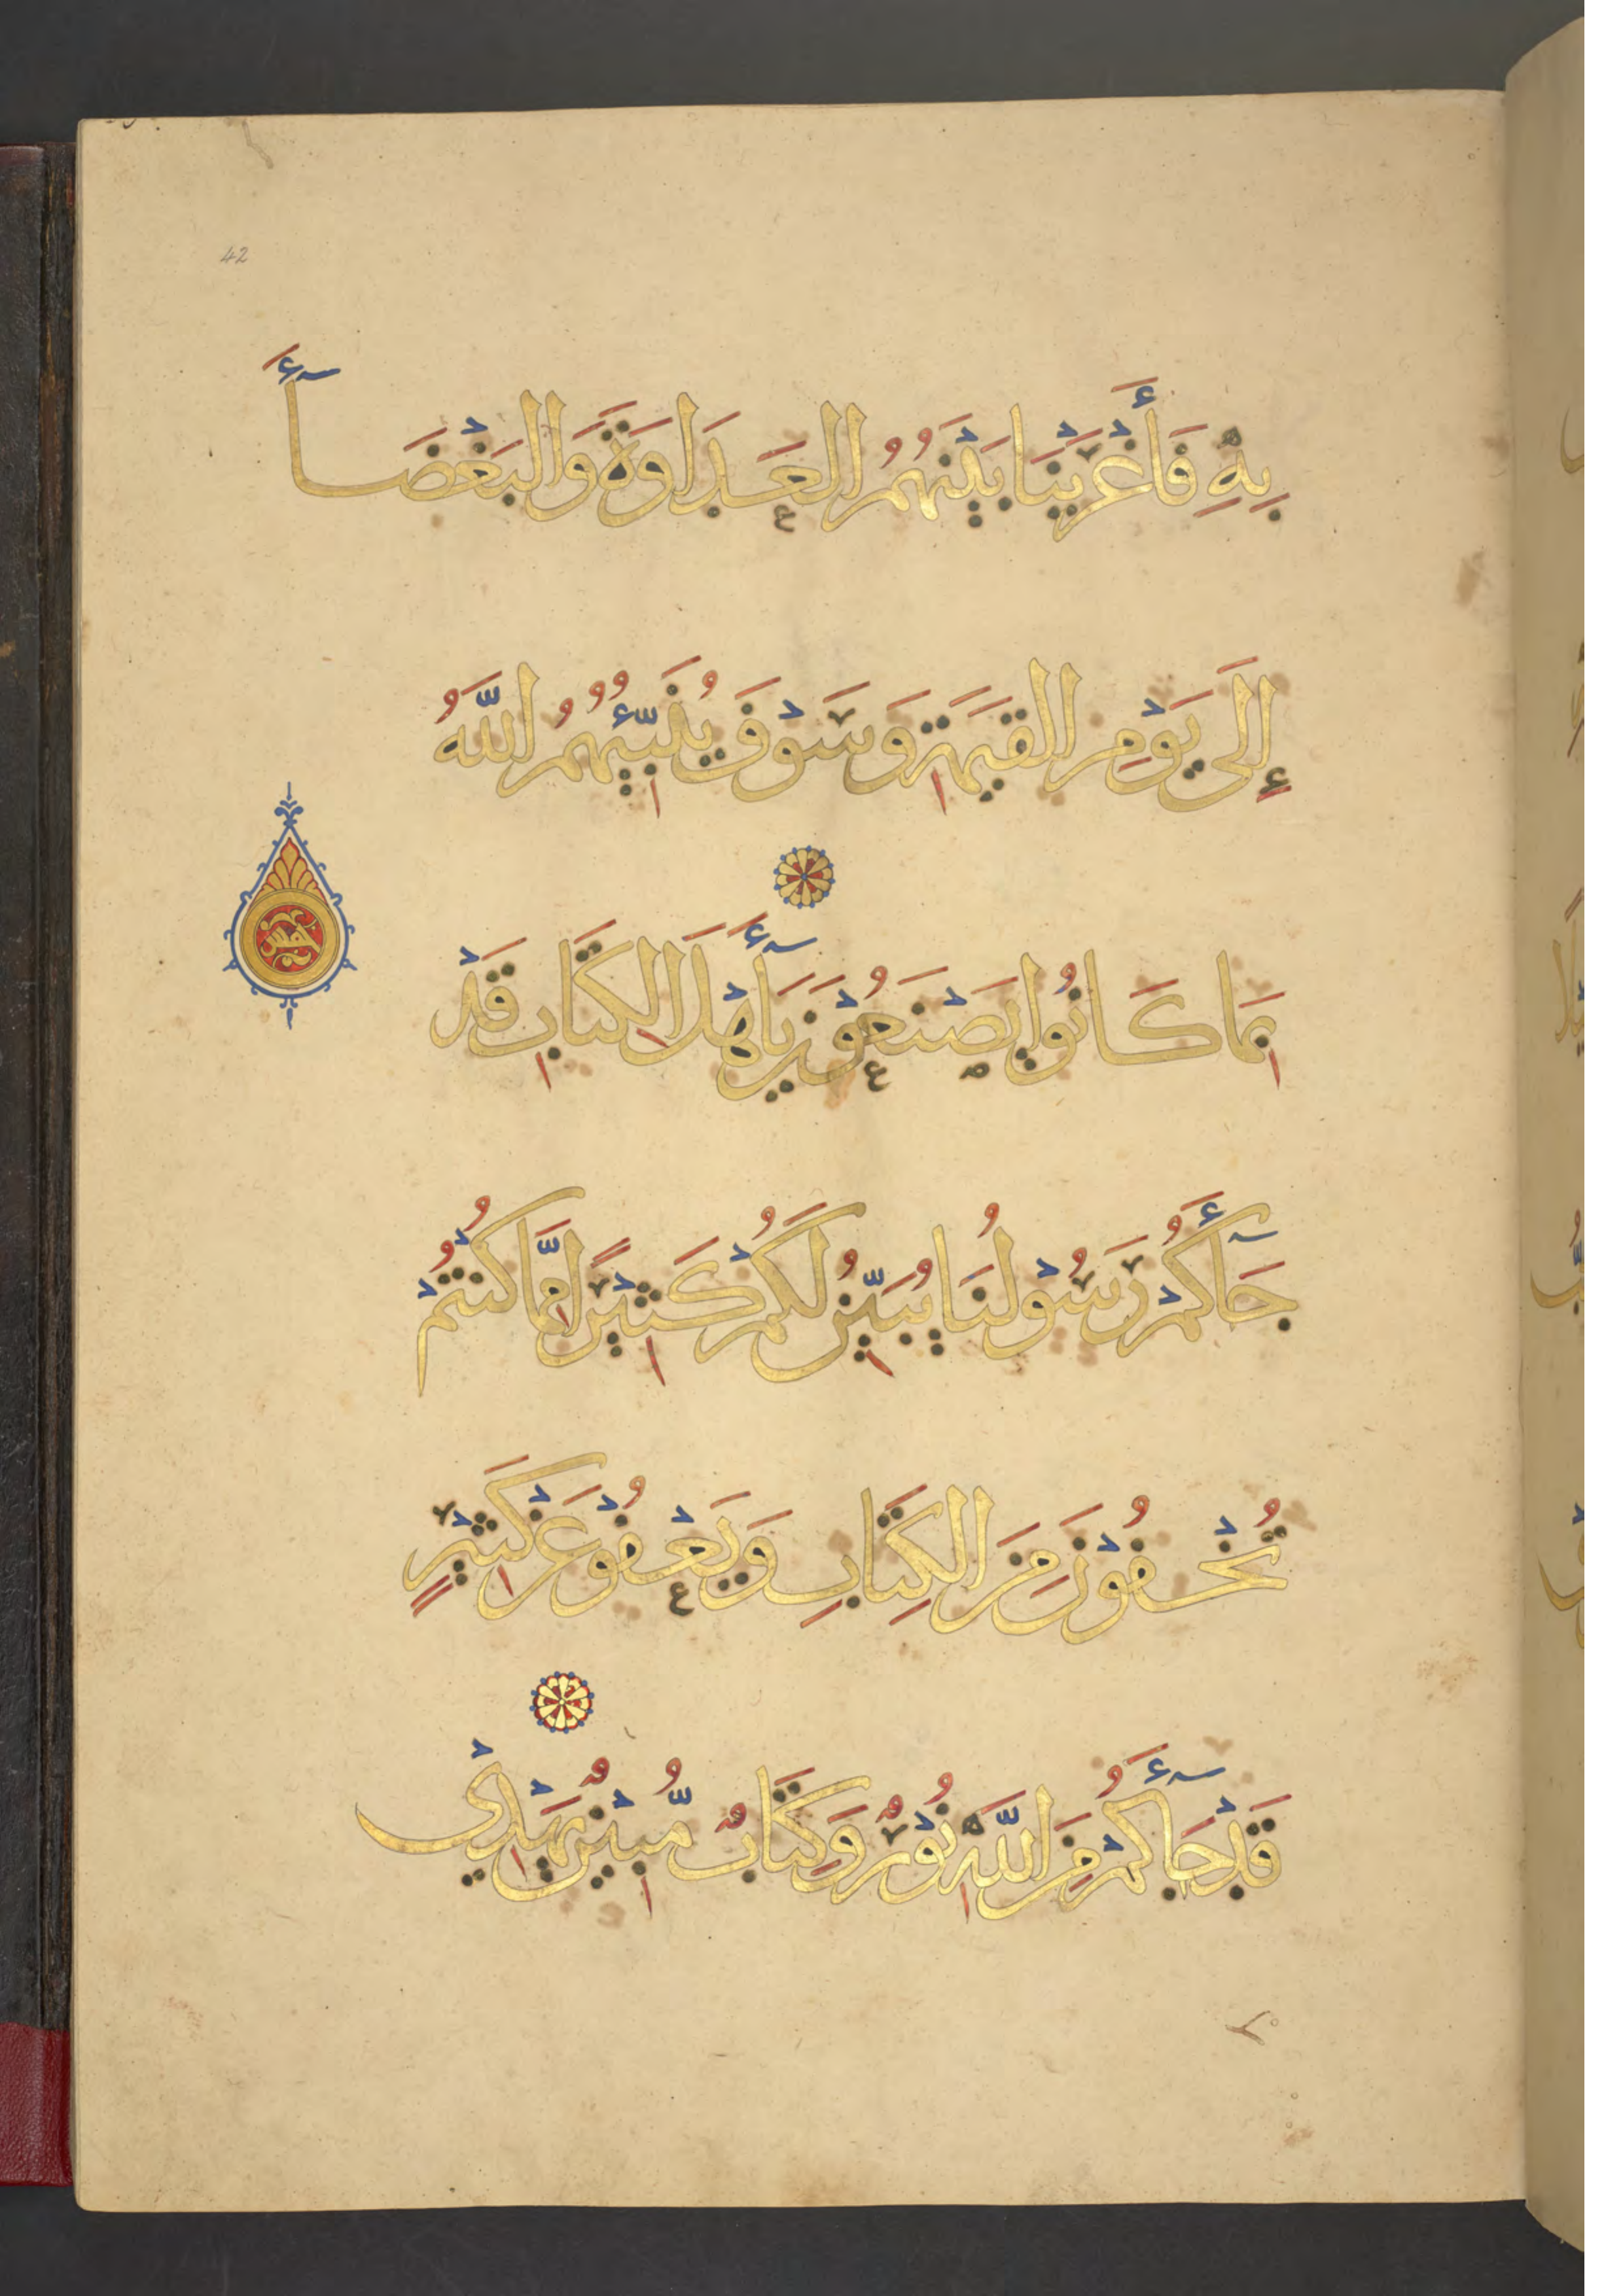 42
بِهِ فَأَغْرَيْنَا بَيْنَهُمُ العَدَاوَةَ وَالبَغْضَآءَ
إِلَى يَوْمِ القِيَمَةِ وَسَوْفَ يُنَبِّئُهُمُ اللَّهُ
بِمَا كَانُوا يَصْنَعُوْنَ يَأَهْلَ الكِتَابِ قَدْ
جَآءَكُمْ رَسُوْلُنَا يُبَيِّنُ لَكُمْ كَثِيْرًا مِمَّا كُنْتُمْ
تُخْفُوْنَ مِنَ الكِتَابِ وَيَعْفُوْ عَنْ كَثِيْرٍ
قَدْ جَآءَكُمْ مِنَ اللَّهِ نُوْرٌ وَكِتَابٌ مُّبِيْنٌ يَهْدِيْ